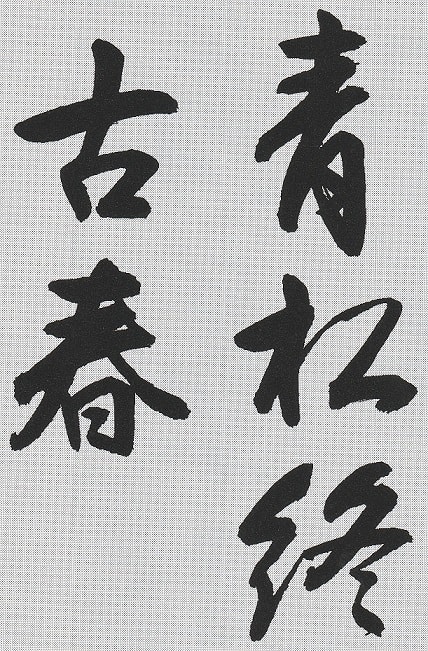 青松终
古春